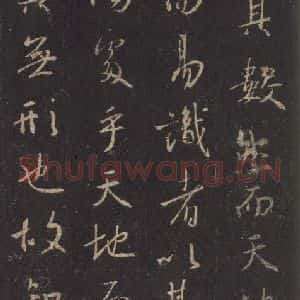 其數然而天地
而易識者以其
陽處乎天地而
其無形也故知
Shufawang.CN